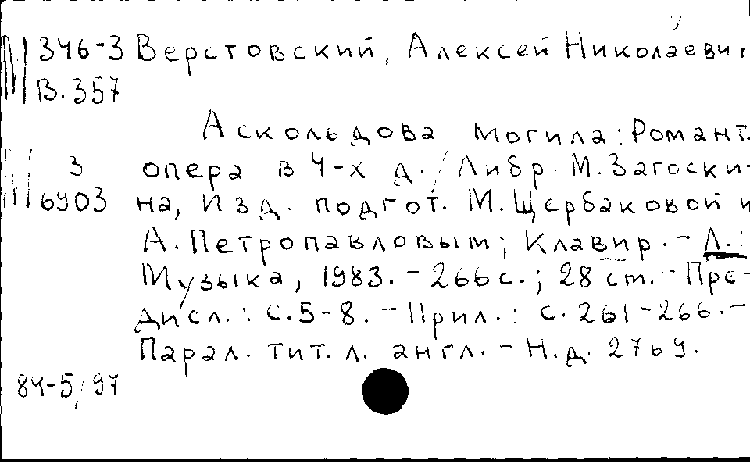 346-3 Верстовский, Алексей Николаевич
В.357
Аскольдова могила: Романт.
3 опера в 4-х д. / Либр. М. Загоски-
6903 на, Изд. подгот. М. Щербаковой и
А. Петропавловым; Клавир. - Л.:
Музыка, 1983. - 266 с.; 28 cm. - Пре-
дисл.: с. 5-8. - Прил.: с. 261-266. -
Парал. тит. л. англ. - Н.д. 2769.
84-5/97